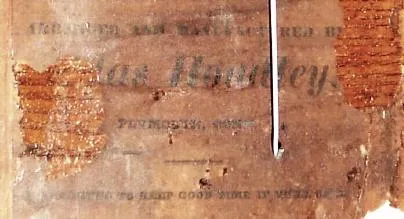 AND MANUFACTURED BY
las Hoadley,
PLYMOUTH, CONN
TO KEEP GOOD TIME IF WELL